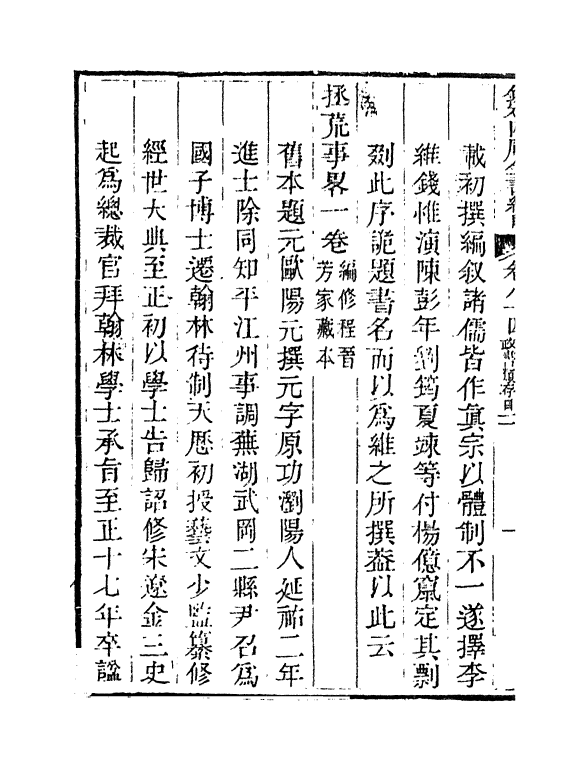 欽定四庫全書總目 卷八十四 政書類存目二 一
載初撰編叙諸儒皆作真宗以體制不一遂擇李
維錢惟演陳彭年劉筠夏竦等付楊億竄定其剽
剟此序詭題書名而以為維之所撰葢以此云
拯荒事畧一卷 編修程晉芳家藏本
舊本題元歐陽元撰元字原功瀏陽人延祐二年
進士除同知平江州事調蕪湖武岡二縣尹召為
國子博士遷翰林待制天歷初授藝文少監纂修
經世大典至正初以學士告歸詔修宋遼金三史
起為總裁官拜翰林學士承旨至正十七年卒諡